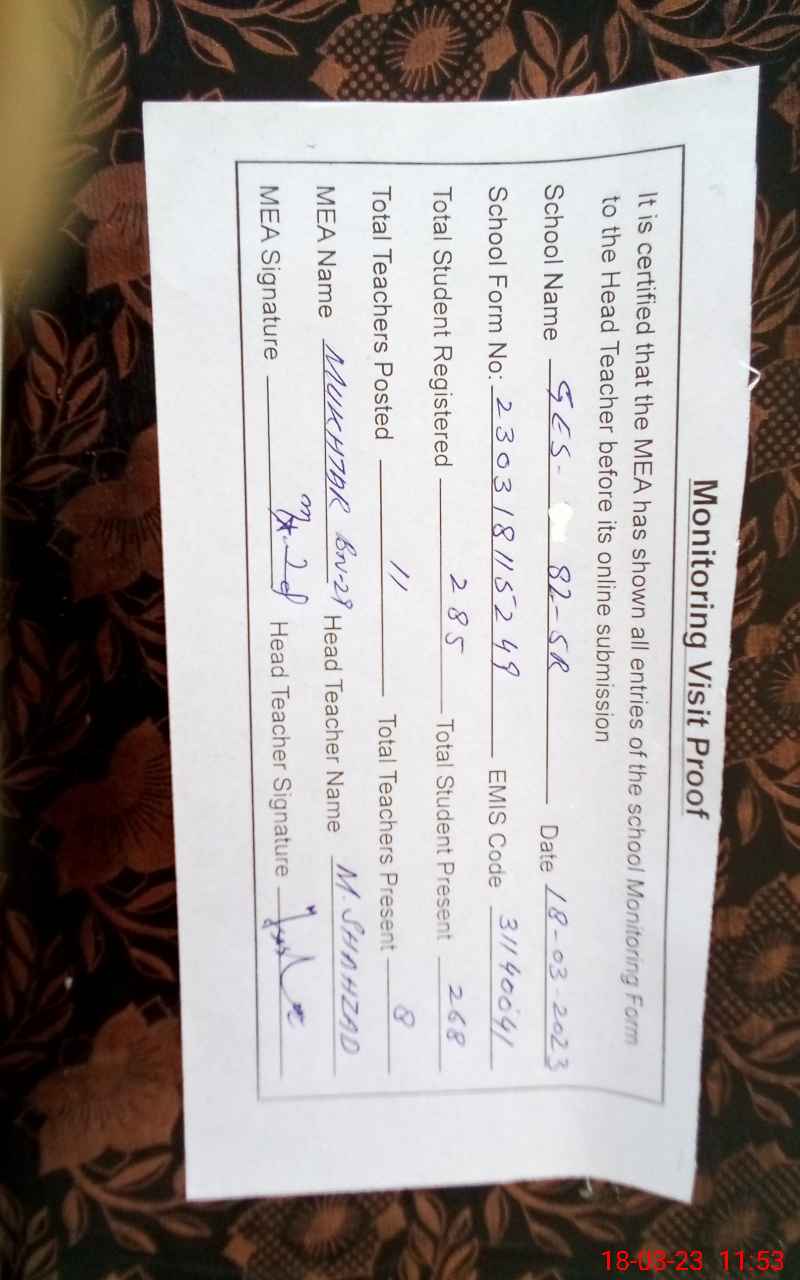 Monitoring Visit Proof
It is certified that the MEA has shown all entries of the school Monitoring Form
to the Head Teacher before its online submission
School Name GES- 82-5R Date 18-03-2023
School Form No: 230318115249 EMIS Code 31140041
Total Student Registered 285 Total Student Present 268
Total Teachers Posted 11 Total Teachers Present 8
MEA Name MUKHTAR BN-29 Head Teacher Name M. SHAHZAD
MEA Signature Head Teacher Signature
18-03-23 11:53